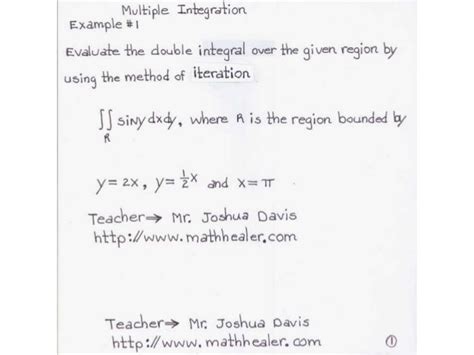 Multiple Integration
Example #1
Evaluate the double integral over the given region by
using the method of iteration
∬ siny dxdy, where R is the region bounded by
R
y= 2x, y= ½x and x= π
Teacher⇒ Mr. Joshua Davis
http://www.mathhealer.com
Teacher⇒ Mr. Joshua Davis
http://www.mathhealer.com ①